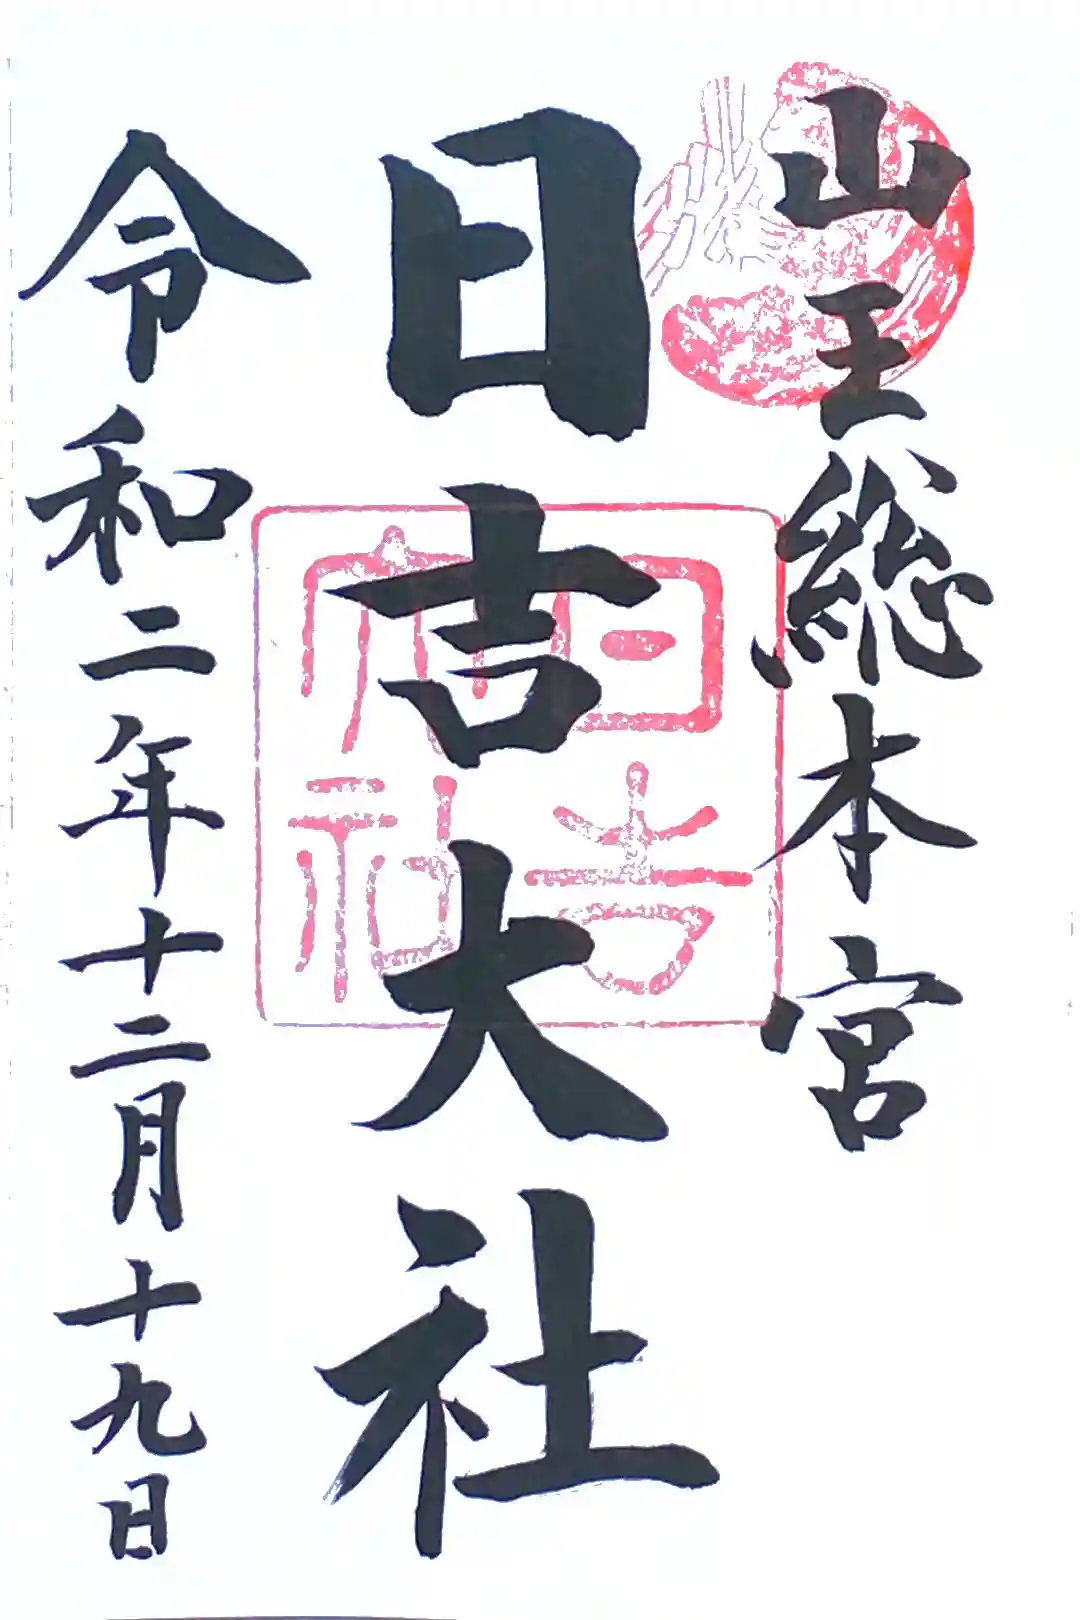 山王総本宮
日吉大社
日吉大社
令和二年十二月十九日